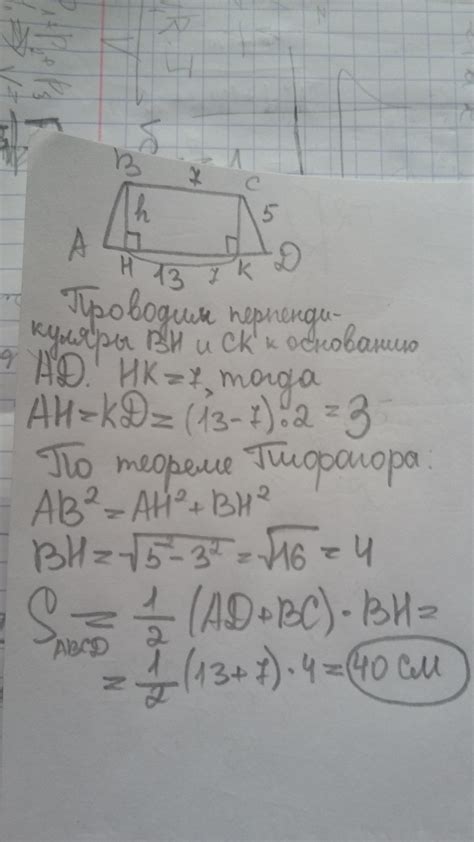 B 7 C
h 5
A H 13 7 K D
Проводим перпенди-
куляры BH и CK к основанию
AD. HK=7, тогда
AH=KD=(13-7):2=3
По теореме Пифагора:
AB²=AH²+BH²
BH=√5²-3²=√16=4
S ABCD = 1/2 (AD+BC)·BH=
= 1/2 (13+7)·4=40 см